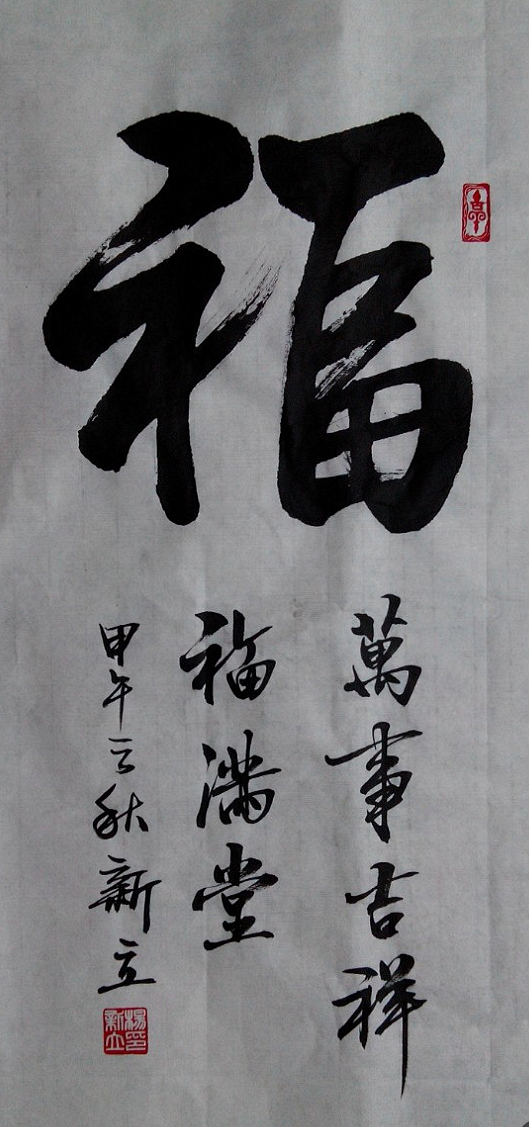 福
萬事吉祥
福滿堂
甲午之秋新立
楊印新立